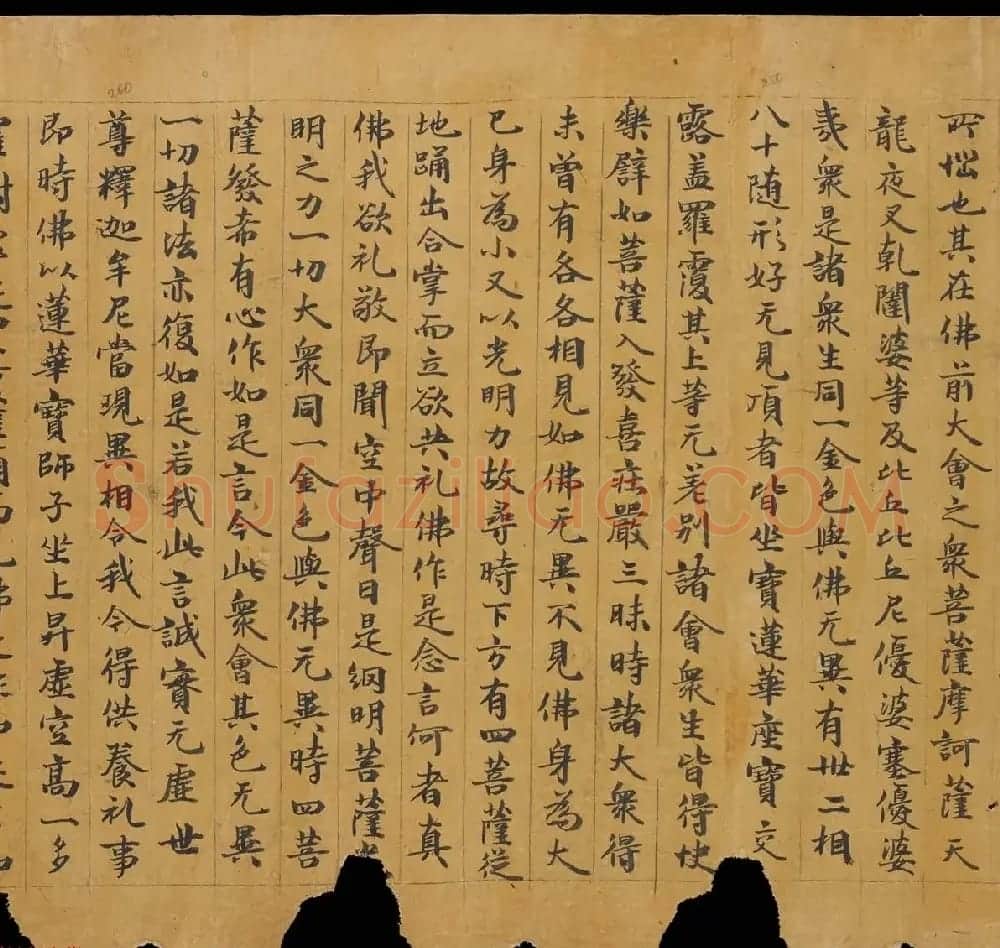 所惱也其在佛前大會之衆菩薩摩訶薩天
龍夜叉乹闥婆等及比丘比丘尼優婆塞優婆
夷衆是諸衆生同一金色與佛无異有卅二相
八十随形好无見頂者皆坐寶蓮華座寶交
露盖羅覆其上等无差别諸會衆生皆得快
樂譬如菩薩入發喜莊嚴三昧時諸大衆得
未曾有各各相見如佛无異不見佛身為大
已身為小又以光明力故尋時下方有四菩薩從
地踊出合掌而立欲共礼佛作是念言何者真
佛我欲礼敬即聞空中聲曰是網明菩薩
明之力一切大衆同一金色與佛无異時四菩
薩發希有心作如是言今此衆會其色无異
一切諸法亦復如是若我此言誠實无虚世
尊釋迦牟尼當現異相令我令得供養礼事
即時佛以蓮華寶師子坐上昇虚空高一多
260
250
Shufaziliao.COM